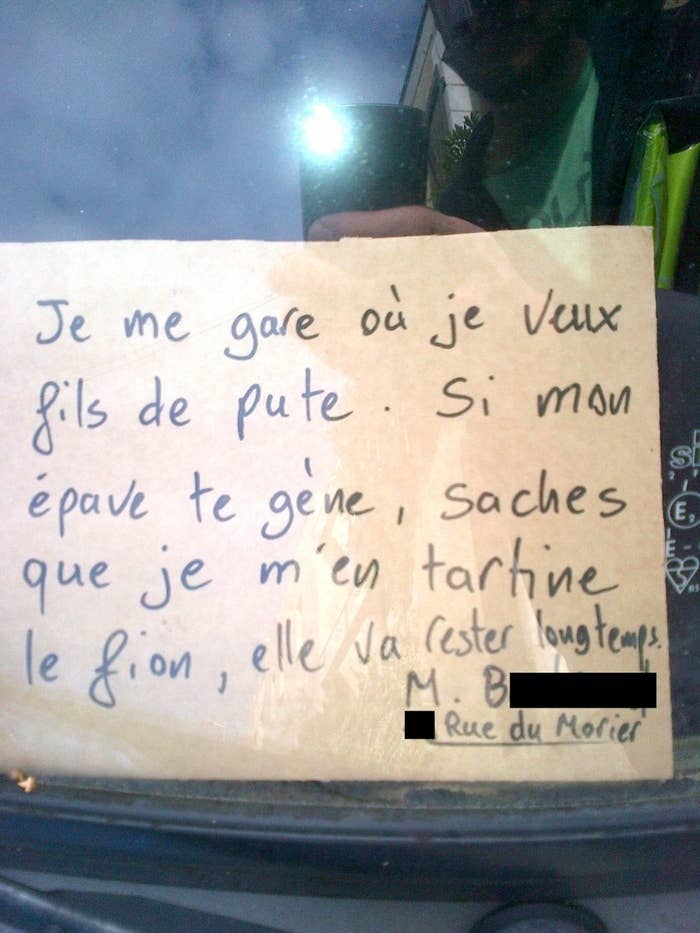 Je me gare où je veux
fils de pute. Si mon
épave te gène, saches
que je m'en tartine
le fion, elle va rester longtemps.
M. B
Rue du Morier